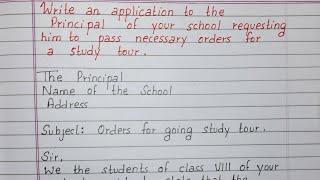 Write an application to the
Principal of your school requesting
him to pass necessary orders for
a study tour.
The Principal
Name of the School
Address
Subject: Orders for going study tour.
Sir,
We the students of class VIII of your
that the